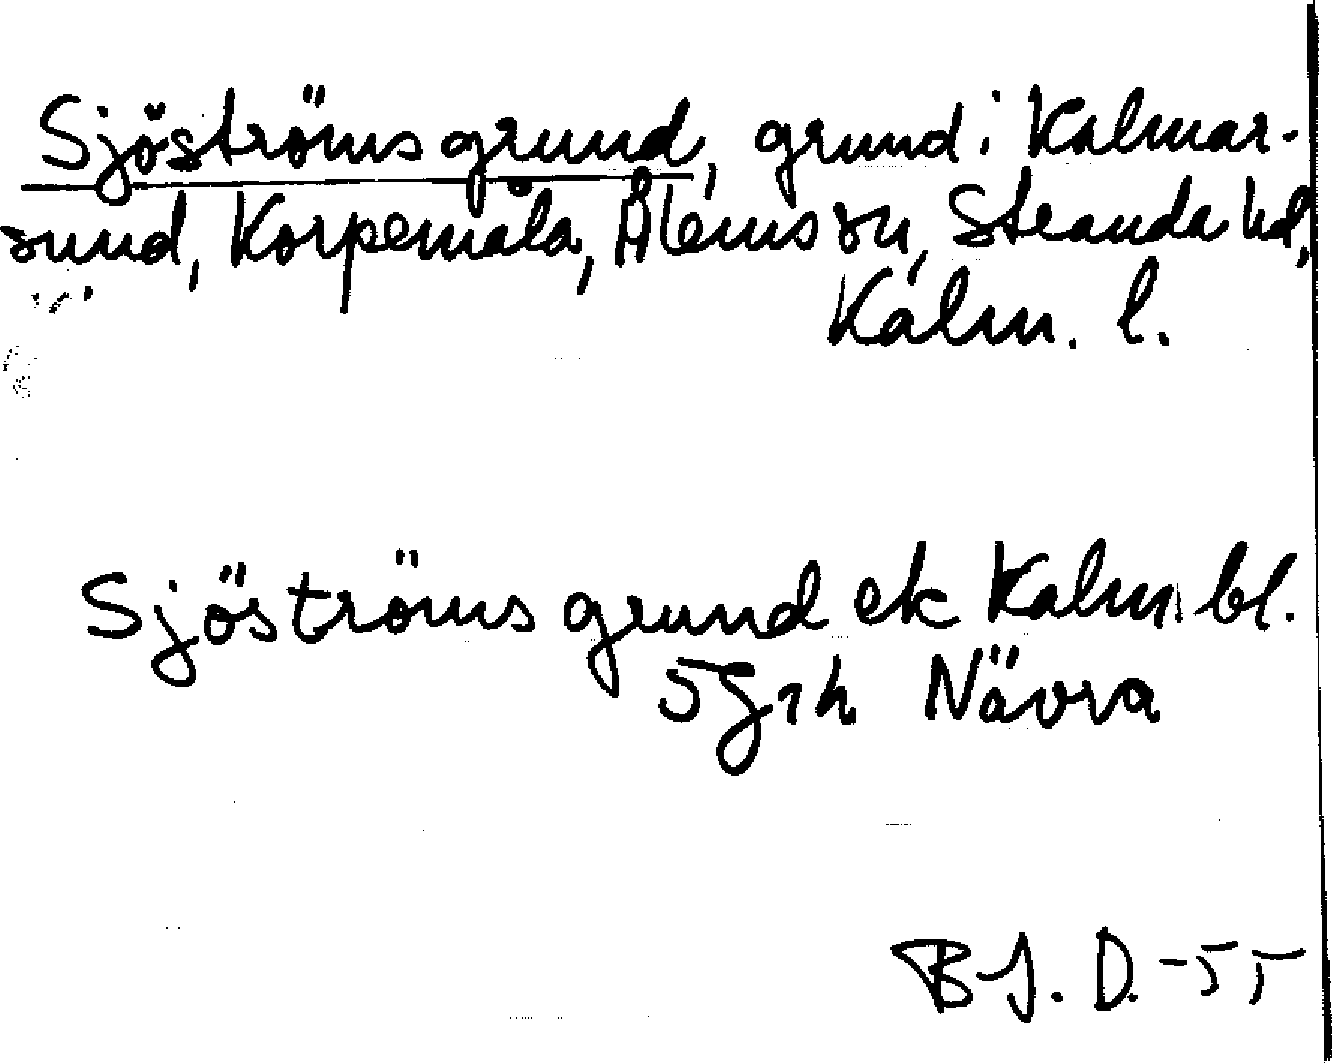 Sjöströmsgrund, grund i Kalmar-
sund, Korpemåla, Ålems sn, Stranda hd,
Kalm. l.
Sjöströms grund ek Kalm. bl.
5g1h Nävra
B-J. D. -55